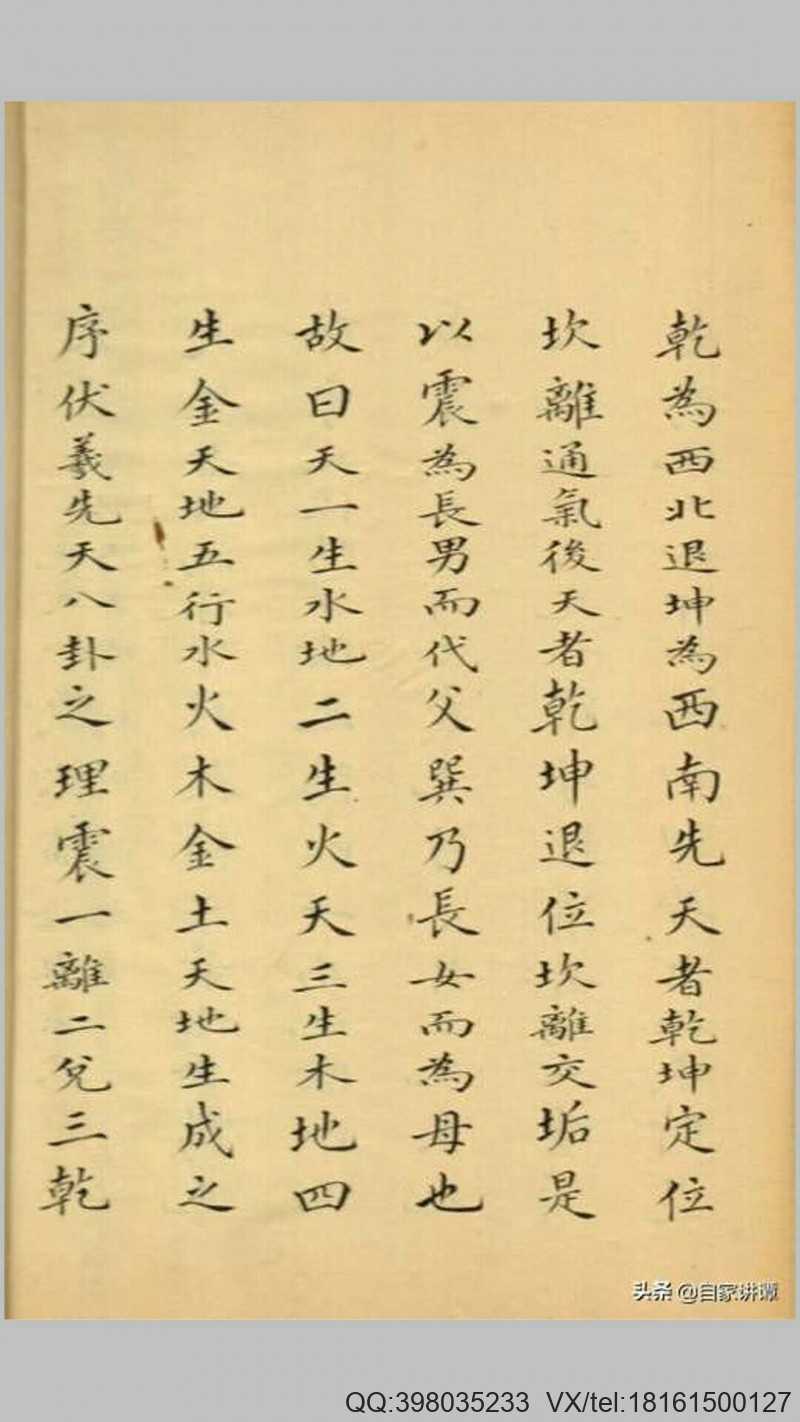 乾為西北退坤為西南先天者乾坤定位
坎離通氣後天者乾坤退位坎離交垢是
以震為長男而代父巽乃長女而為母也
故曰天一生水地二生火天三生木地四
生金天地五行水火木金土天地生成之
序伏羲先天八卦之理震一離二兌三乾
头条 @自家讲坛
QQ:398035233 VX/tel:18161500127